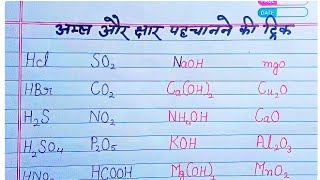 DATE
अम्ल और क्षार पहचानने की ट्रिक
Hcl SO₂ NaOH mgo
HBr CO₂ Ca(OH)₂ Cu₂O
H₂S NO₂ NH₄OH CaO
H₂SO₄ P₂O₅ KOH Al₂O₃
HNO₃ HCOOH Mg(OH)₂ MnO₂